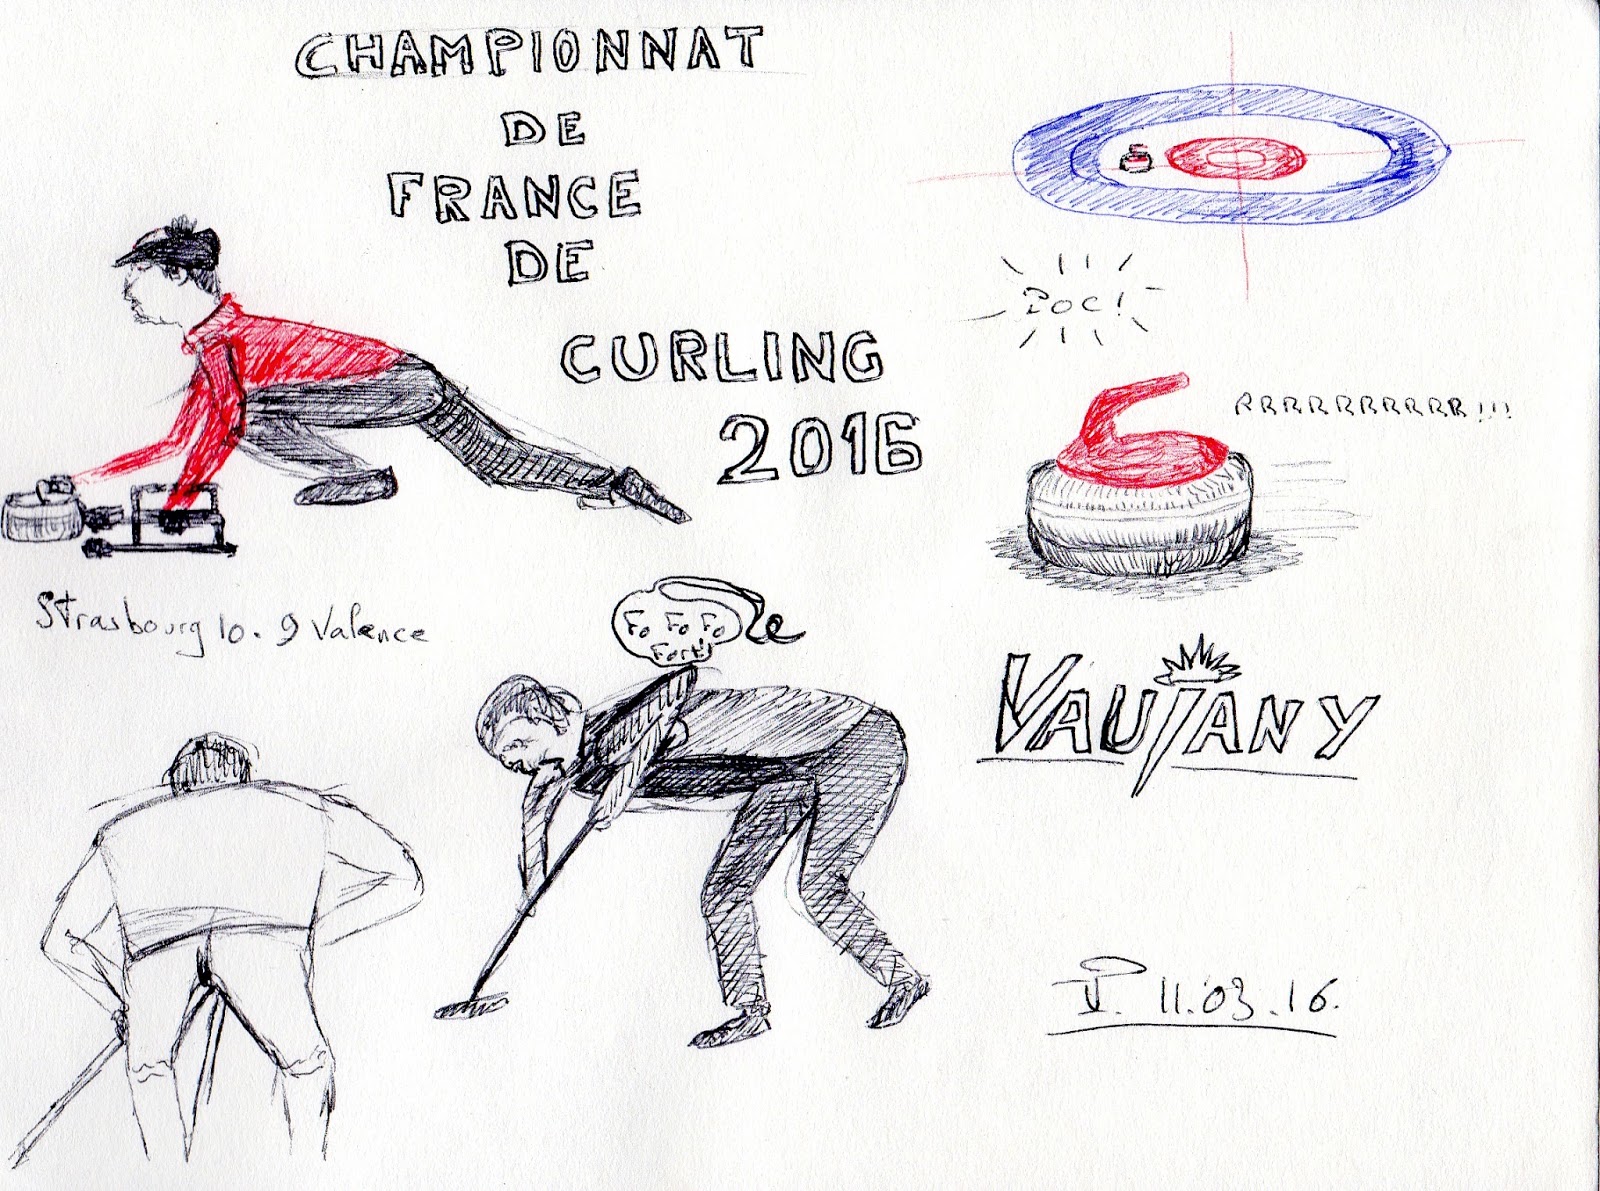 CHAMPIONNAT
DE
FRANCE
DE
CURLING
2016
POC!
RRRRRRRRRR!!!
Strasbourg 10 - 9 Valence
Fo Fo Fo
Fort!
VAUJANY
11.03.16.